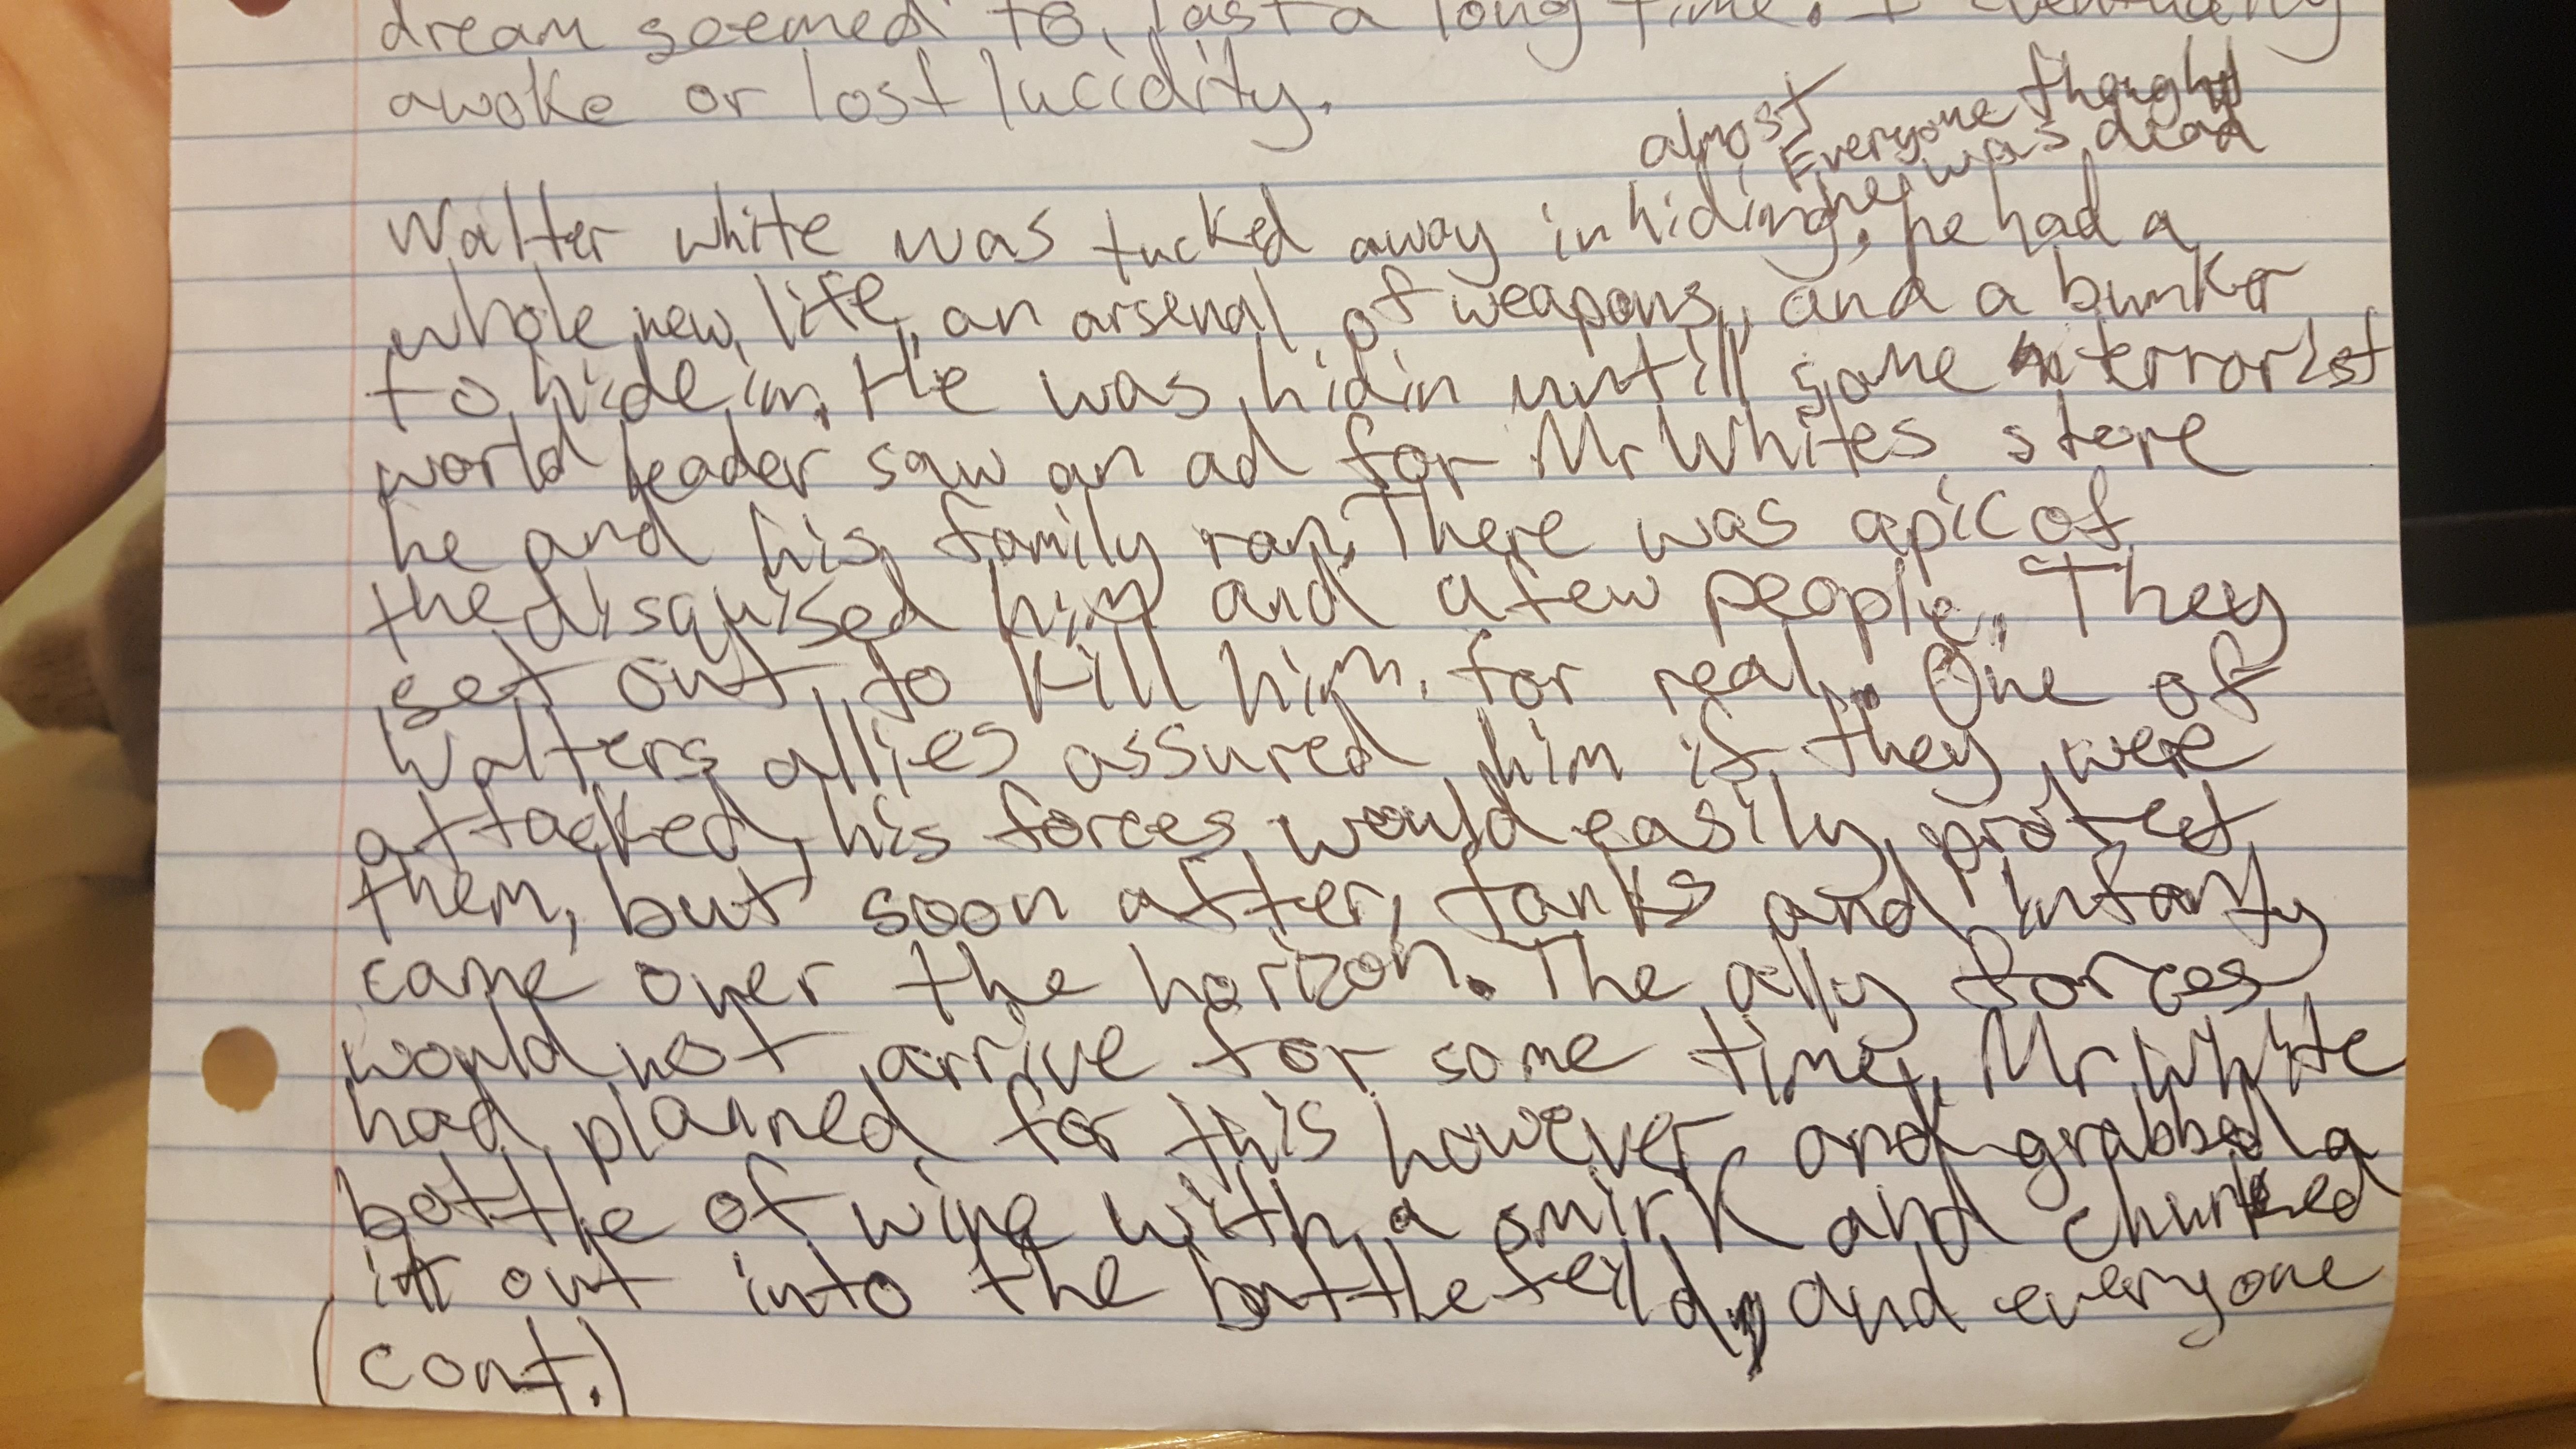 dream seemed to last a long time. I eventually
awoke or lost lucidity.
almost Everyone thought
he was dead
Walter white was tucked away in hiding, he had a
whole new life, an arsenal of weapons, and a bunker
to hide in. He was hidin untill some terrorist
world leader saw an ad for Mr Whites store
he and his family ran. There was a pic of
the disquised him and a few people. They
set out to kill him, for real. One of
Walters allies assured him if they were
attacked, his forces would easily protect
them, but soon after, tanks and infanty
came over the horizon. The ally forces
would not arrive for some time, Mr White
had plained for this however and grabbed a
bottle of wine with a smirk and chunked
it out into the battlefeild, and everyone
(cont.)